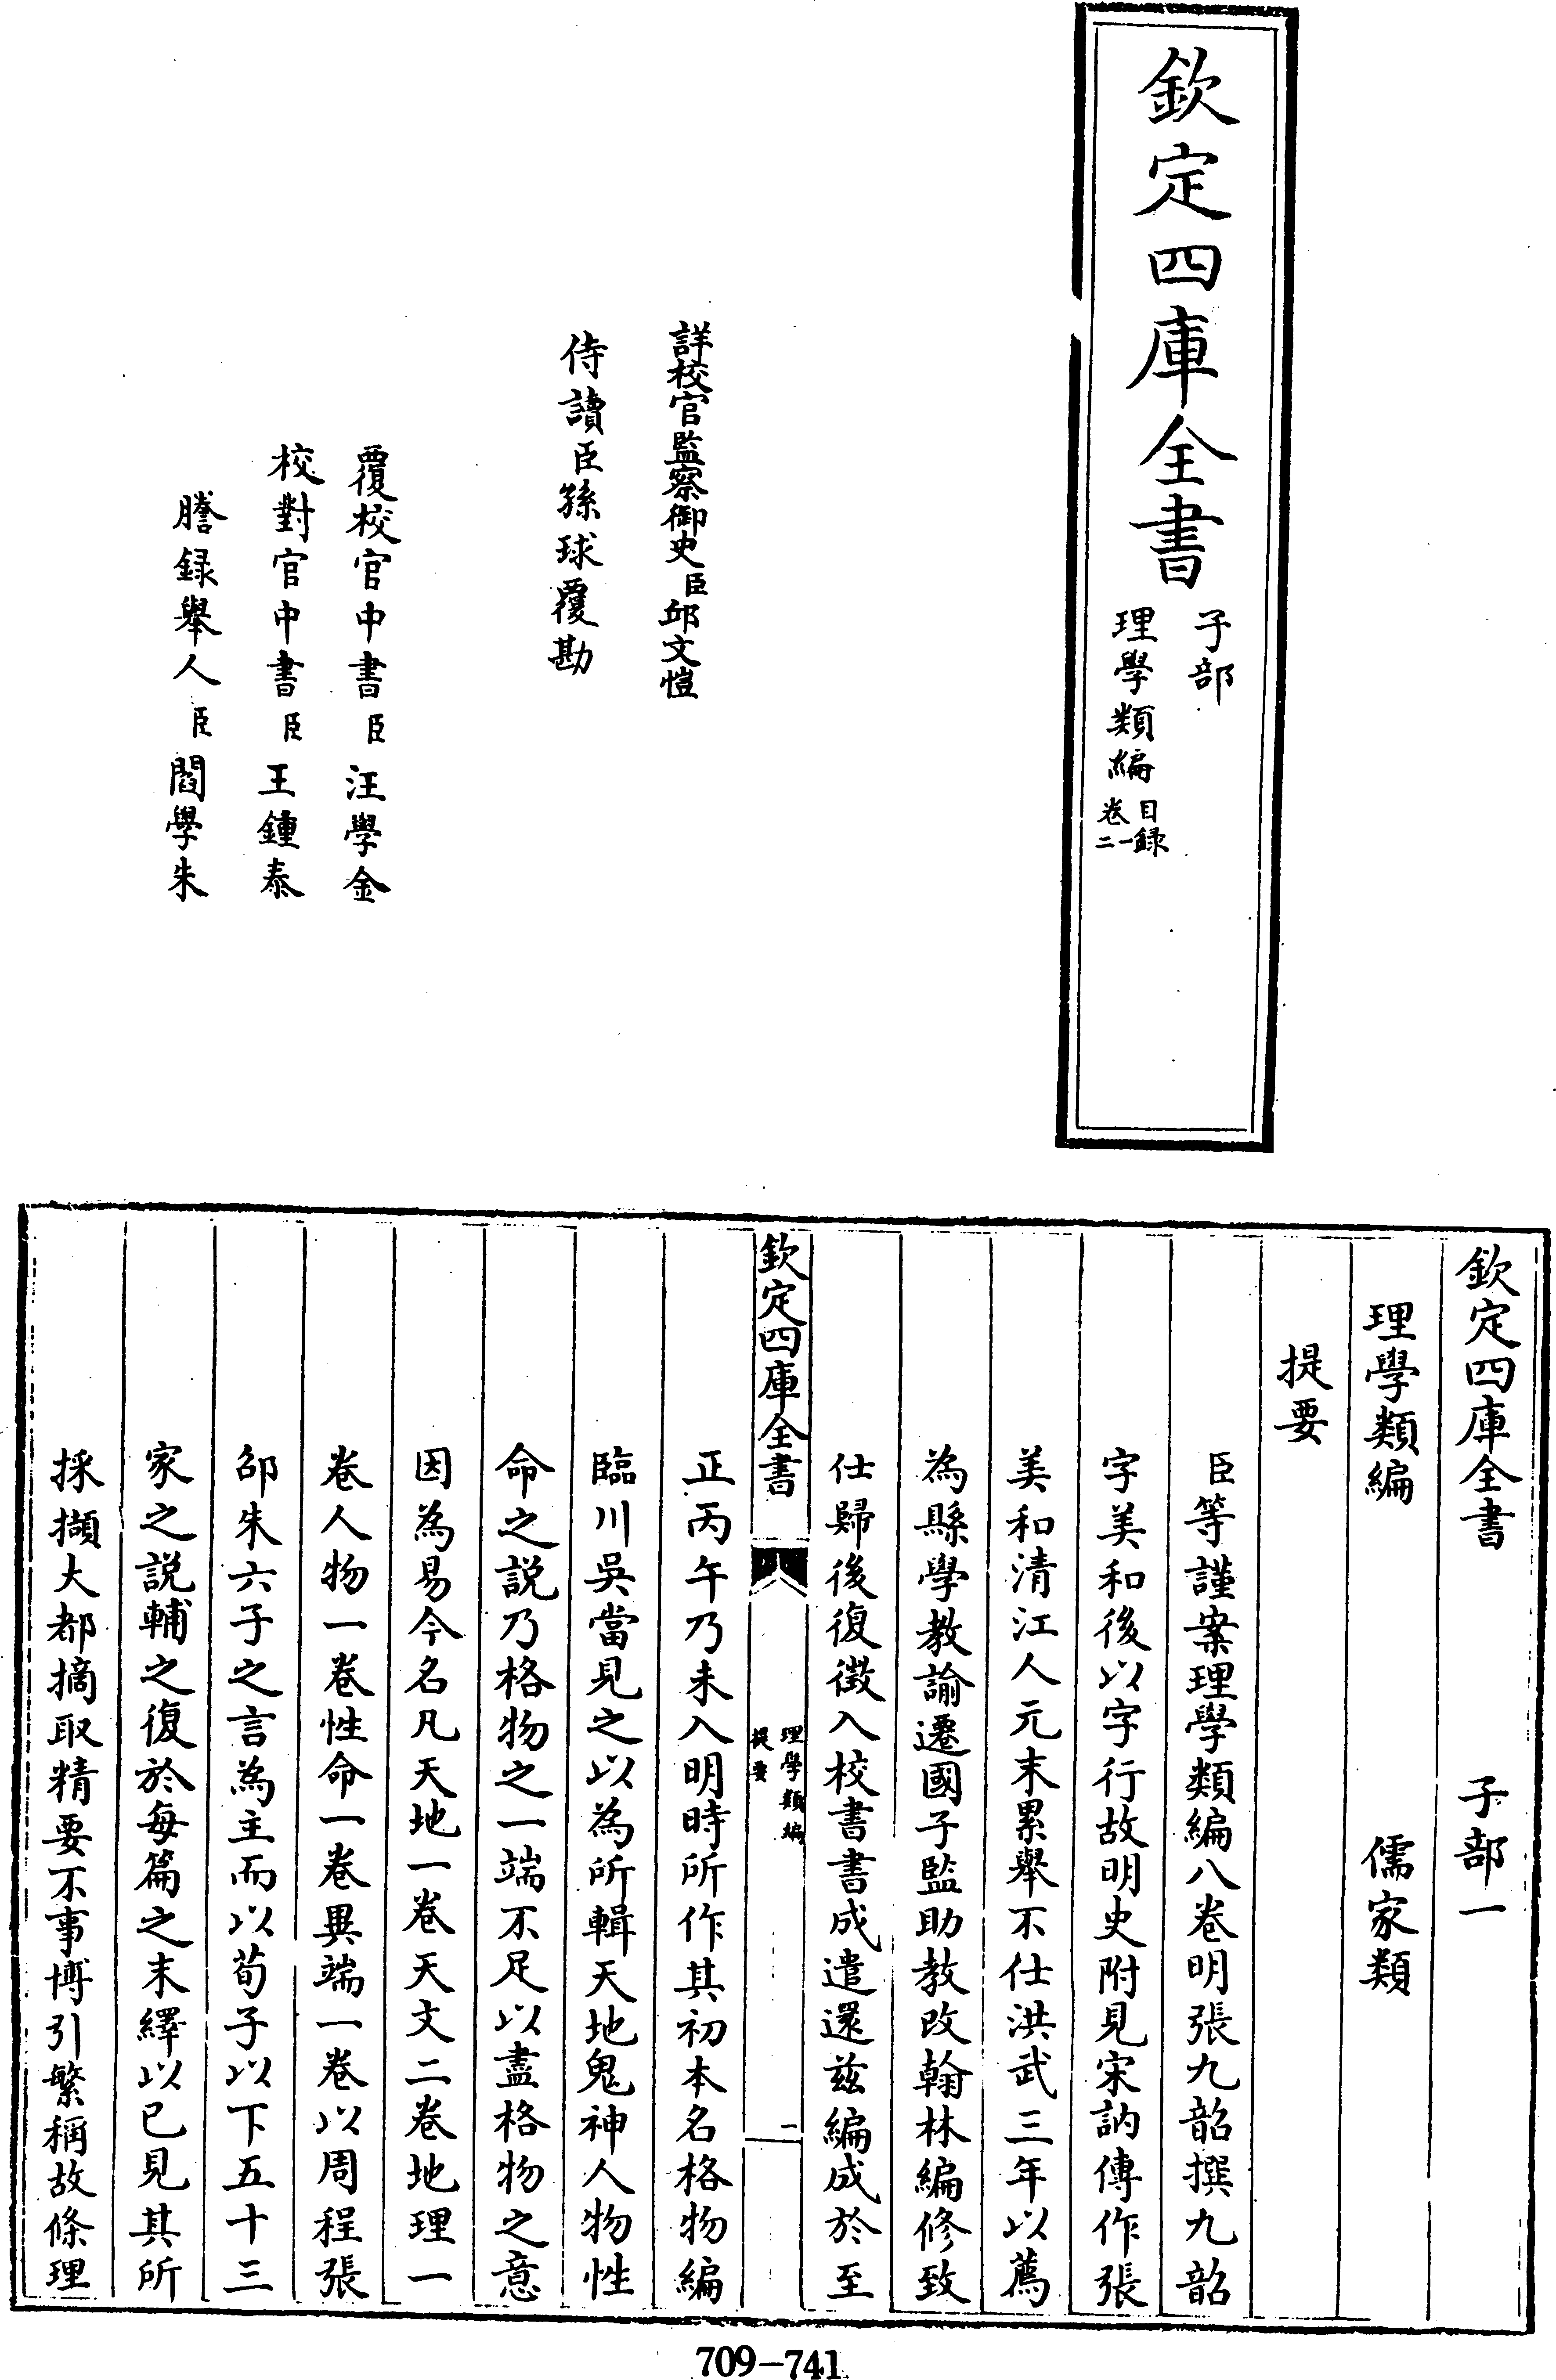 欽定四庫全書
子部
理學類編
目録
卷一
二
詳校官監察御史臣邱文愷
侍讀臣孫球覆勘
覆校官中書臣汪學金
校對官中書臣王鍾泰
謄録舉人臣閻學朱
欽定四庫全書　子部一
理學類編　儒家類
提要
臣等謹案理學類編八卷明張九韶撰九韶
字美和後以字行故明史附見宋訥傳作張
美和清江人元末累舉不仕洪武三年以薦
為縣學教諭遷國子監助教改翰林編修致
仕歸後復徴入校書書成遣還兹編成於至
欽定四庫全書
理學類編
提要
一
正丙午乃未入明時所作其初本名格物編
臨川吳當見之以為所輯天地鬼神人物性
命之説乃格物之一端不足以盡格物之意
因為易今名凡天地一卷天文二卷地理一
卷人物一卷性命一卷異端一卷以周程張
邵朱六子之言為主而以荀子以下五十三
家之説輔之復於每篇之末繹以己見其所
採擷大都摘取精要不事博引繁稱故條理
709-741